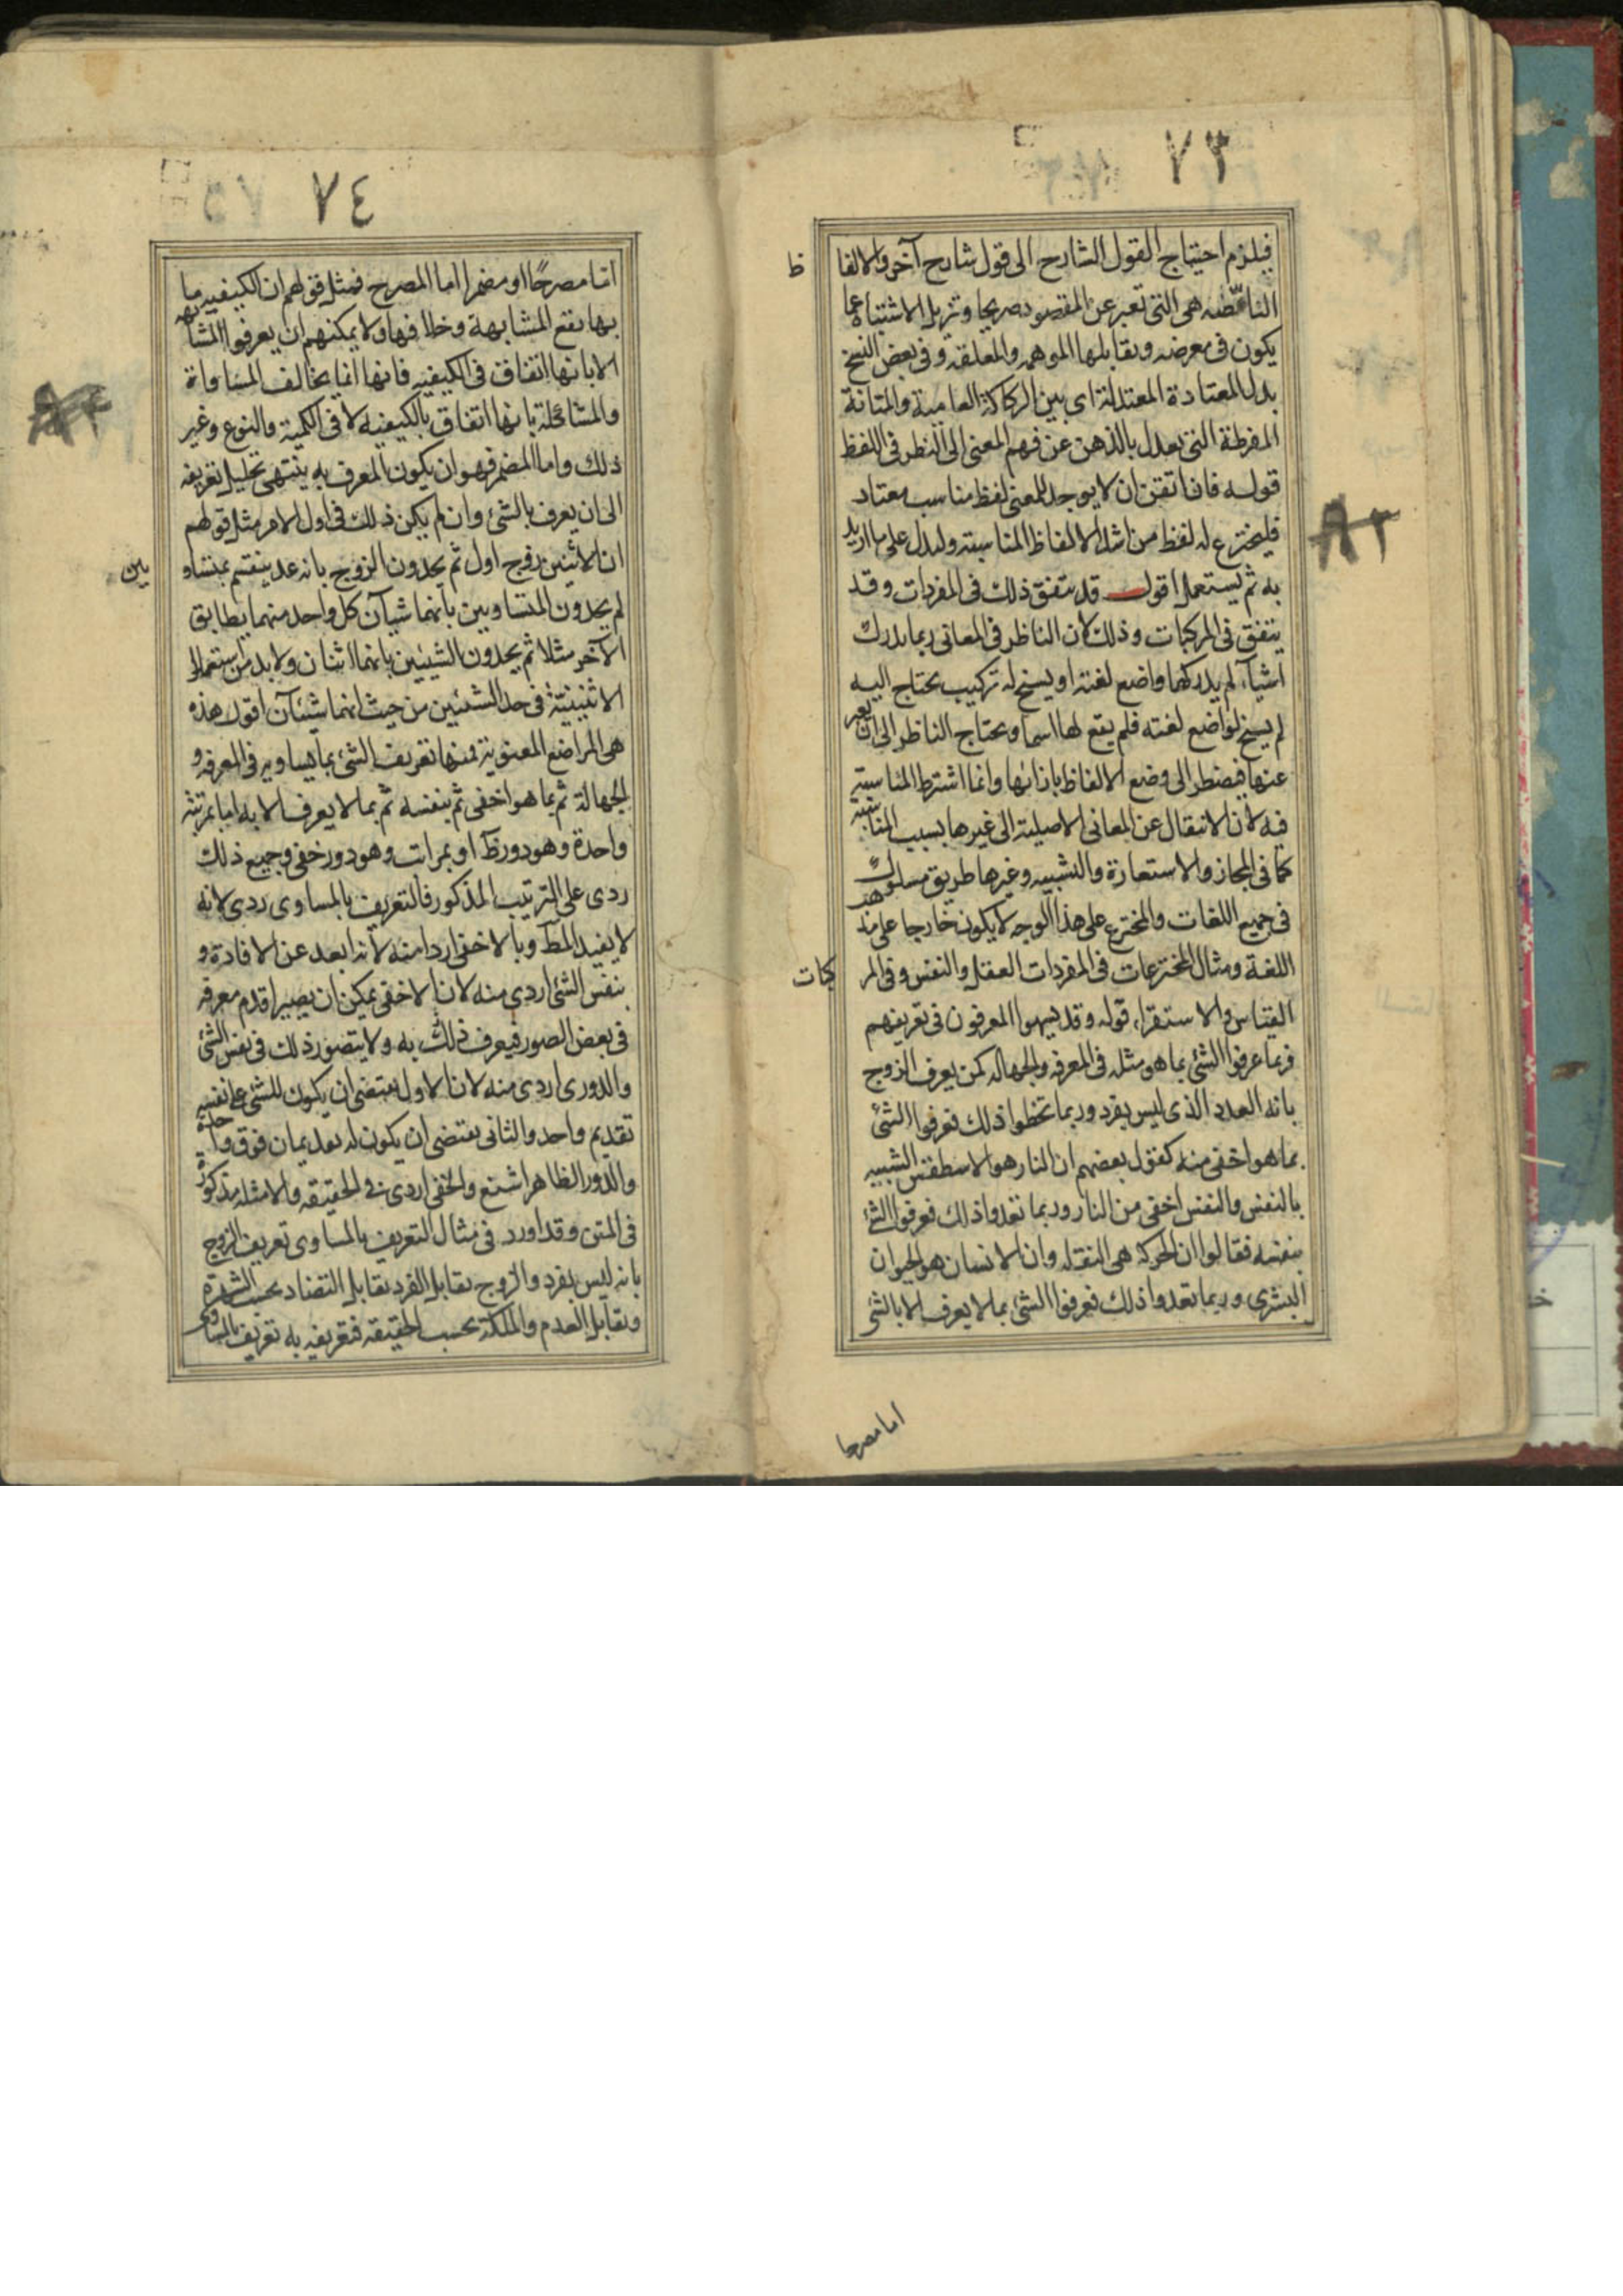 ٧٣
فيلزم احتياج القول الشارح الى قول شارح آخر والالفا
ظ
الناصة هى التى تعبر عن المقصود صريحا وتزيل الاشتباه عما
يكون فى معرضه وتقابلها الموهمه والمعلقه وفى بعض النسخ
بدل المعتادة المعتدلة اى بين الركاكة العامية والمتانة
المفرطة التى يعدل بالذهن عن فهم المعنى الى النظر فى اللفظ
قوله فان اتفق ان لا يوجد للمعنى لفظ مناسب معتاد
فليخترع له لفظ من اشد الالفاظ المناسبته وليدل على ما اريد
٨٢
به ثم يستعمل اقول قد يتفق ذلك فى المفردات وقد
يتفق فى المركبات وذلك لان الناظر فى المعانى ربما يدرك
اشيآء لم يدركها واضع لغته او يسنح له تركيب يحتاج اليه
لم يسنح لواضع لغته فلم يقع لها اسما ويحتاج الناظر الى ان يعبر
عنها فيضطر الى وضع الالفاظ بازائها وانما اشترط المناسبته
فيه لان الانتقال عن المعانى الاصلية الى غيرها بسبب المناسبة
كما فى المجاز والاستعارة والتشبيه وغيرها طريق مسلوك
فى جميع اللغات والمخترع على هذا الوجه لا يكون خارجا على مذهب
اللغة ومثال المخترعات فى المفردات العقل والنفس وفى المر
كبات
القياس والاستقراء قوله وقد يسهوا المعرفون فى تعريفهم
فربما عرفوا الشئ بما هو مثله فى المعرفه والجهاله كمن يعرف الزوج
بانه العدد الذى ليس بفرد وربما تخطوا ذلك فعرفوا الشئ
بما هو اخفى منه كقول بعضهم ان النار هو الاسطقس الشبيه
بالنفس والنفس اخفى من النار وربما تعدوا ذلك فعرفوا الشئ
بنفسه فقالوا ان الحركة هى النقله وان الانسان هو الحيوان
البشرى وربما تعدوا ذلك فعرفوا الشئ بما لا يعرف الا بالشئ
اما مصرحا
٧٤
اما مصرحًا او مضمرا اما المصرح فمثل قولهم ان الكيفيه ما
بها يقع المشابهة وخلافها ولا يمكنهم ان يعرفوا المشابهه
الا بانها اتفاق فى الكيفيه فانها انما يخالف المساواة
والمشاكلة بانها اتفاق بالكيفيه لا فى الكمية والنوع وغير
ذلك واما المضمر فهو ان يكون المعرف به ينتهى تحليل تعريفه
الى ان يعرف بالشئ وان لم يكن ذلك فى اول الامر مثل قولهم
ان الاثنين زوج اول ثم يحدون الزوج بانه عدد ينقسم بمتساو
يين
ثم يحدون المتساويين بانهما شيآن كل واحد منهما يطابق
الآخر مثلا ثم يحدون الشيئين بانهما اثنان ولا بد من استعمال
الاثنينية فى حد الشيئين من حيث انهما شيئآن اقول هذه
هى المواضع المعنوية فمنها تعريف الشئ بما يساويه فى المعرفه و
الجهالة ثم بما هو اخفى ثم بنفسه ثم بما لا يعرف الا به اما بمرتبة
واحدة وهو دور ظآ او بمراتب وهو دور خفى وجميع ذلك
ردى على الترتيب المذكور فالتعريف بالمساوى ردى لانه
لا يفيد المط وبالاخفى اردا منه لانه ابعد عن الافادة و
بنفس الشئ اردى منه لان الاخفى يمكن ان يصير اقدم معرفه
فى بعض الصور فيعرف ذلك به ولا يتصور ذلك فى نفس الشئ
والدورى اردى منه لان الاول يقتضى ان يكون للشئ على نفسه
تقديم واحد والثانى يقتضى ان يكون له تقديمان فوق واحدة
والدور الظاهر اشنع والخفى اردى فى الحقيقه والامثله مذكورة
فى المتن وقد اورد فى مثال التعريف بالمساوى تعريف الزوج
بانه ليس بفرد والزوج يقابل الفرد تقابل التضاد بحسب الشهرة
وتقابل العدم والملكة بحسب الحقيقه فتعريفه به تعريف بالمساوى